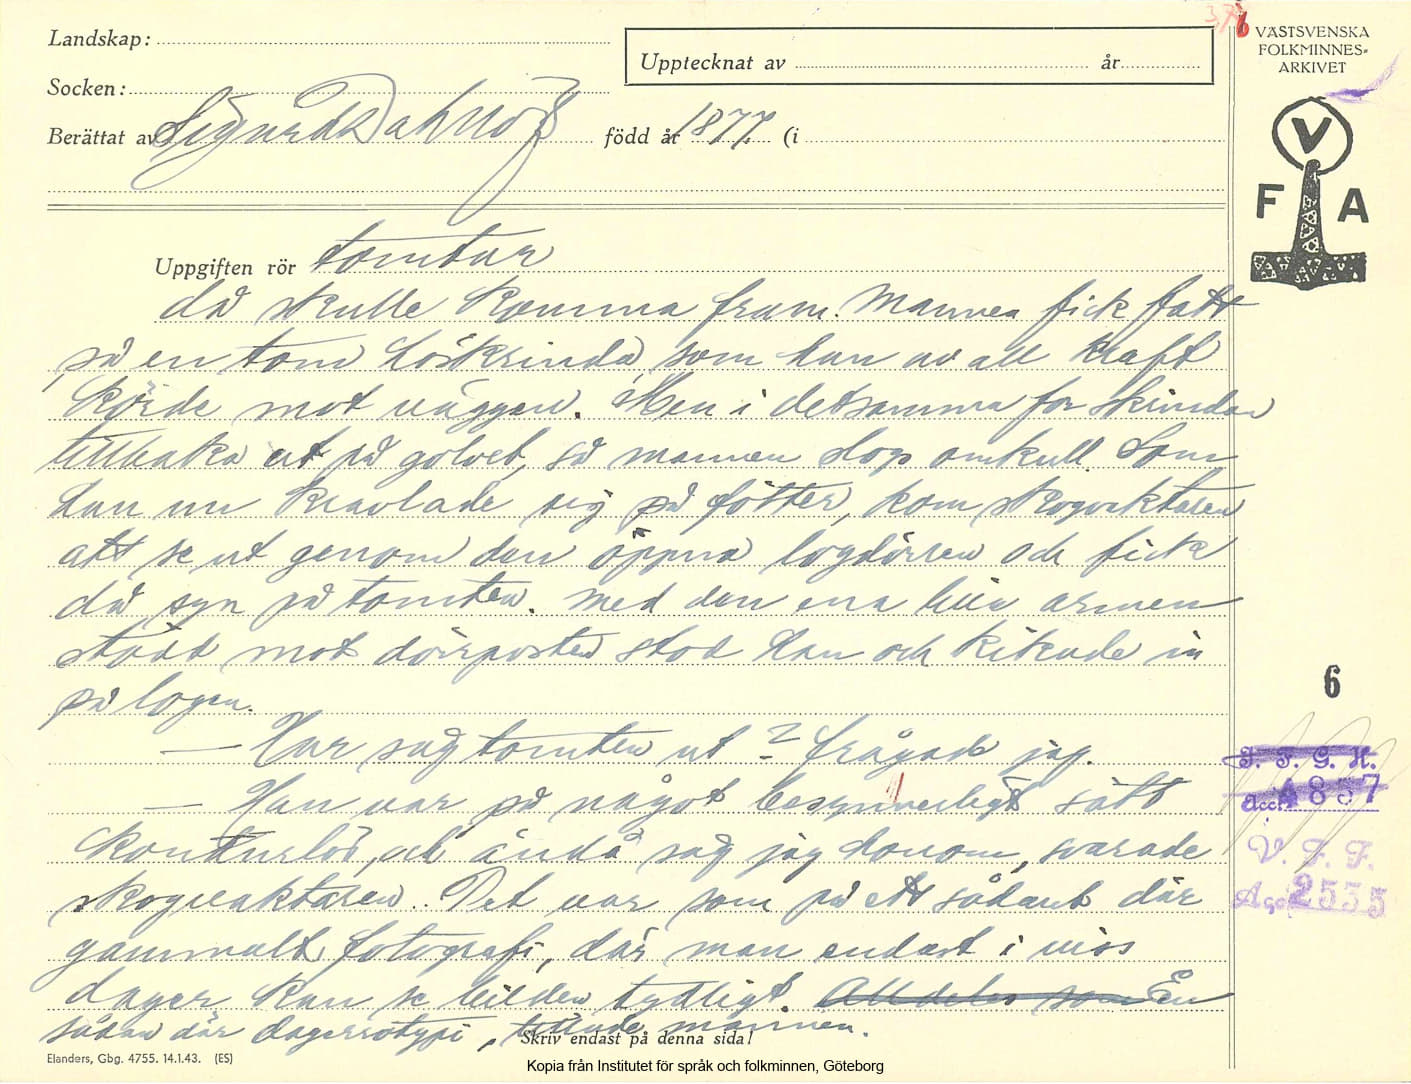 Landskap:
Upptecknat av år
Socken:
Berättat av Sigurd Dahllöf född år 1877. (i
376
VÄSTSVENSKA
FOLKMINNES-
ARKIVET
V
F A
Uppgiften rör tomtar
då skulle komma fram. Mannen fick fatt
på en tom höskrinda, som han av all kraft
körde mot väggen. Men i detsamma for skrindan
tillbaka ut på golvet, så mannen slogs omkull. Som
han nu kravlade sig på fötter, kom skogvaktaren
att se ut genom den öppna logdörren och fick
då syn på tomten. Med den ena lilla armen
stödd mot dörrposten stod han och kikade in
på logen.
— Hur såg tomten ut? frågade jag.
— Han var på något besynnerligt sätt
konturlös, och ändå såg jag honom, svarade
skogvaktaren. Det var som på ett sådant där
gammalt fotografi, där man endast i viss
dager kan se bilden tydligt. Alldeles som En
sådan där dagerrotypi, tillade mannen.
Skriv endast på denna sida!
6
I. F. G. H.
Acc. 4857
V. F. F.
Acc. 2535
Elanders, Gbg. 4755. 14.1.43. (ES)
Kopia från Institutet för språk och folkminnen, Göteborg